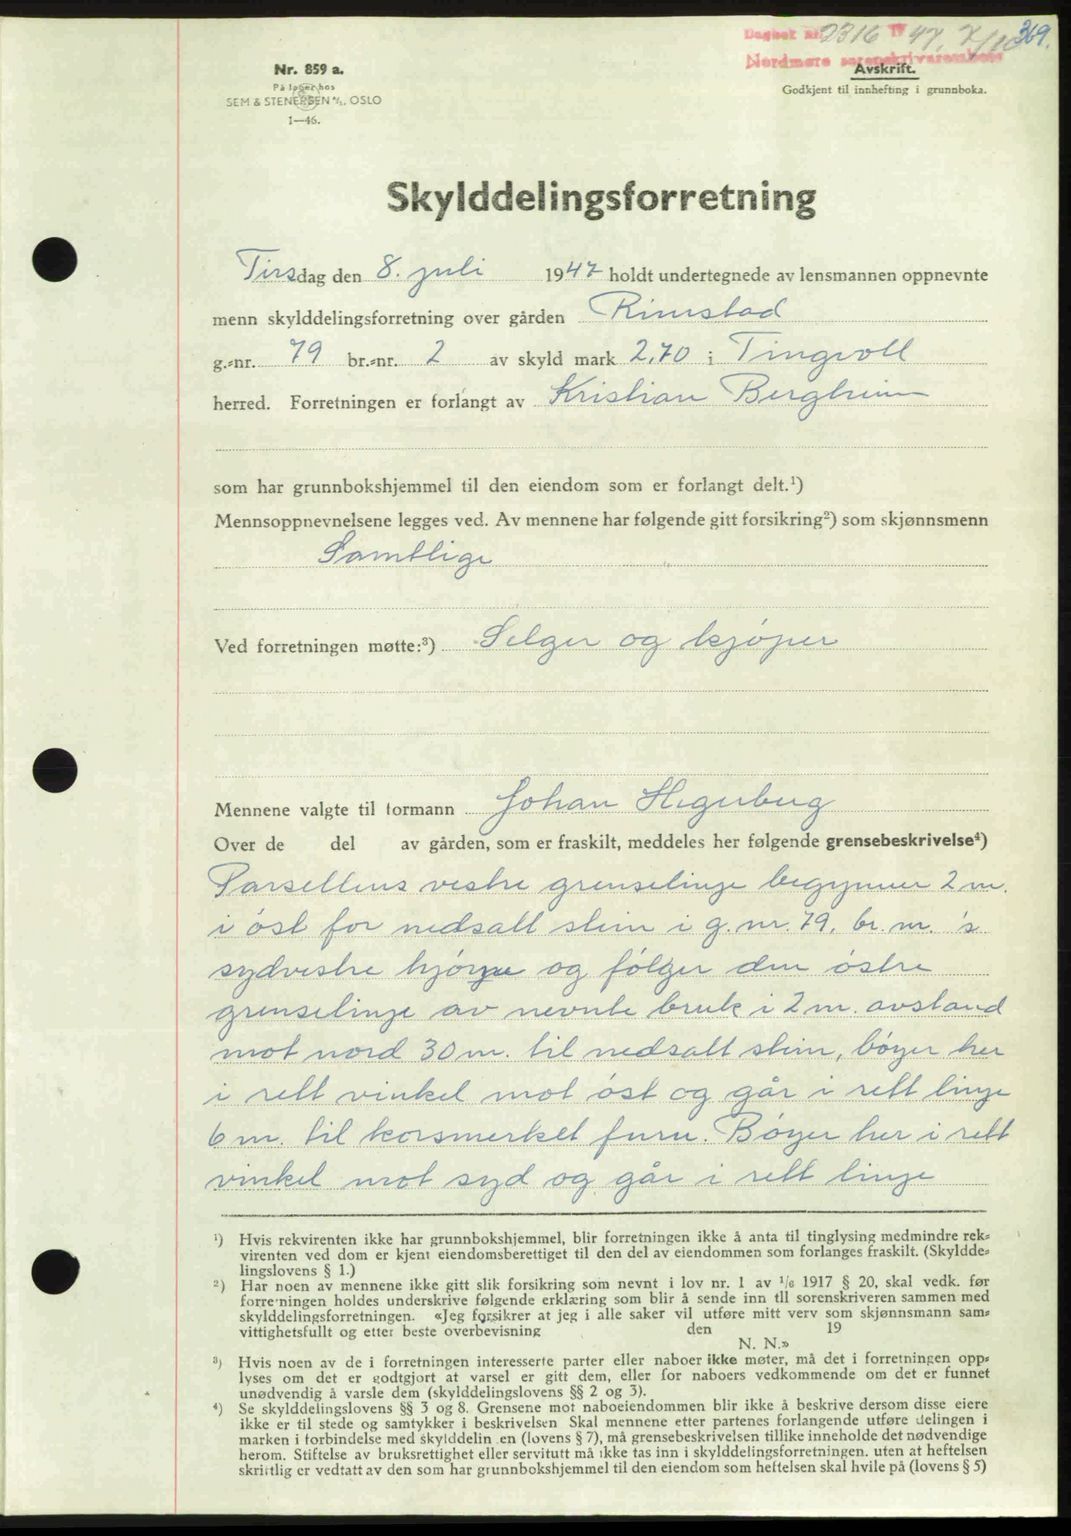 Dagbok nr. 2316 19 47. 7/10 369.
Nordmøre sorenskriverembete
Nr. 859 a.
På lager hos
SEM & STENERSEN A/S. OSLO
1—46.
Avskrift.
Godkjent til innhefting i grunnboka.
Skylddelingsforretning
Tirsdag den 8. juli 1947 holdt undertegnede av lensmannen oppnevnte
menn skylddelingsforretning over gården Rimstad
g.-nr. 79 br.-nr. 2 av skyld mark 2,70 i Tingvoll
herred. Forretningen er forlangt av Kristian Bergheim
som har grunnbokshjemmel til den eiendom som er forlangt delt.¹)
Mennsoppnevnelsene legges ved. Av mennene har følgende gitt forsikring²) som skjønnsmenn
Samtlige
Ved forretningen møtte:³) Selger og kjöper
Mennene valgte til formann Johan
Over de del av gården, som er fraskilt, meddeles her følgende grensebeskrivelse⁴)
Parsellens vestre grenselinje begynner 2 m.
i öst for nedsatt stein i g. nr. 79, br. nr. 's
sydvestre hjörne og fölger den östre
grenselinje av nevnte bruk i 2 m. avstand
mot nord 30 m. til nedsatt stein, böyer her
i rett vinkel mot öst og går i rett linje
6 m. til korsmerket furu. Böyer her i rett
vinkel mot syd og går i rett linje
¹) Hvis rekvirenten ikke har grunnbokshjemmel, blir forretningen ikke å anta til tinglysing medmindre rek-
virenten ved dom er kjent eiendomsberettiget til den del av eiendommen som forlanges fraskilt. (Skyldde-
lingslovens § 1.)
²) Har noen av mennene ikke gitt slik forsikring som nevnt i lov nr. 1 av 1/6 1917 § 20, skal vedk. før
forretningen holdes underskrive følgende erklæring som blir å sende inn til sorenskriveren sammen med
skylddelingsforretningen. «Jeg forsikrer at jeg i alle saker vil utføre mitt verv som skjønnsmann sam-
vittighetsfullt og etter beste overbevisning den 19
N. N.»
³) Hvis noen av de i forretningen interesserte parter eller naboer ikke møter, må det i forretningen opp-
lyses om det er godtgjort at varsel er gitt dem, eller for naboers vedkommende om det er funnet
unødvendig å varsle dem (skylddelingslovens §§ 2 og 3).
⁴) Se skylddelingslovens §§ 3 og 8. Grensene mot naboeiendommen blir ikke å beskrive dersom disse eiere
ikke er til stede og samtykker i beskrivelsen Skal mennene etter partenes forlangende utføre delingen i
marken i forbindelse med skylddelin en (lovens § 7), må grensebeskrivelsen tillike inneholde det nødvendige
herom. Stiftelse av bruksrettighet eller servitutt må ikke tas inn i skylddelingsforretningen, uten at heftelsen
skriftlig er vedtatt av den som har grunnbokshjemmel til den eiendom som heftelsen skal hvile på (lovens § 5)